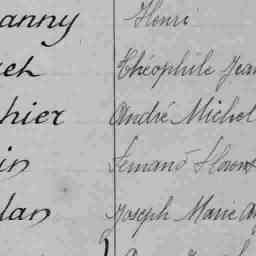 anny Henri
ch Théophile Jean
hier André Michel
in Fernand
lan Joseph Marie